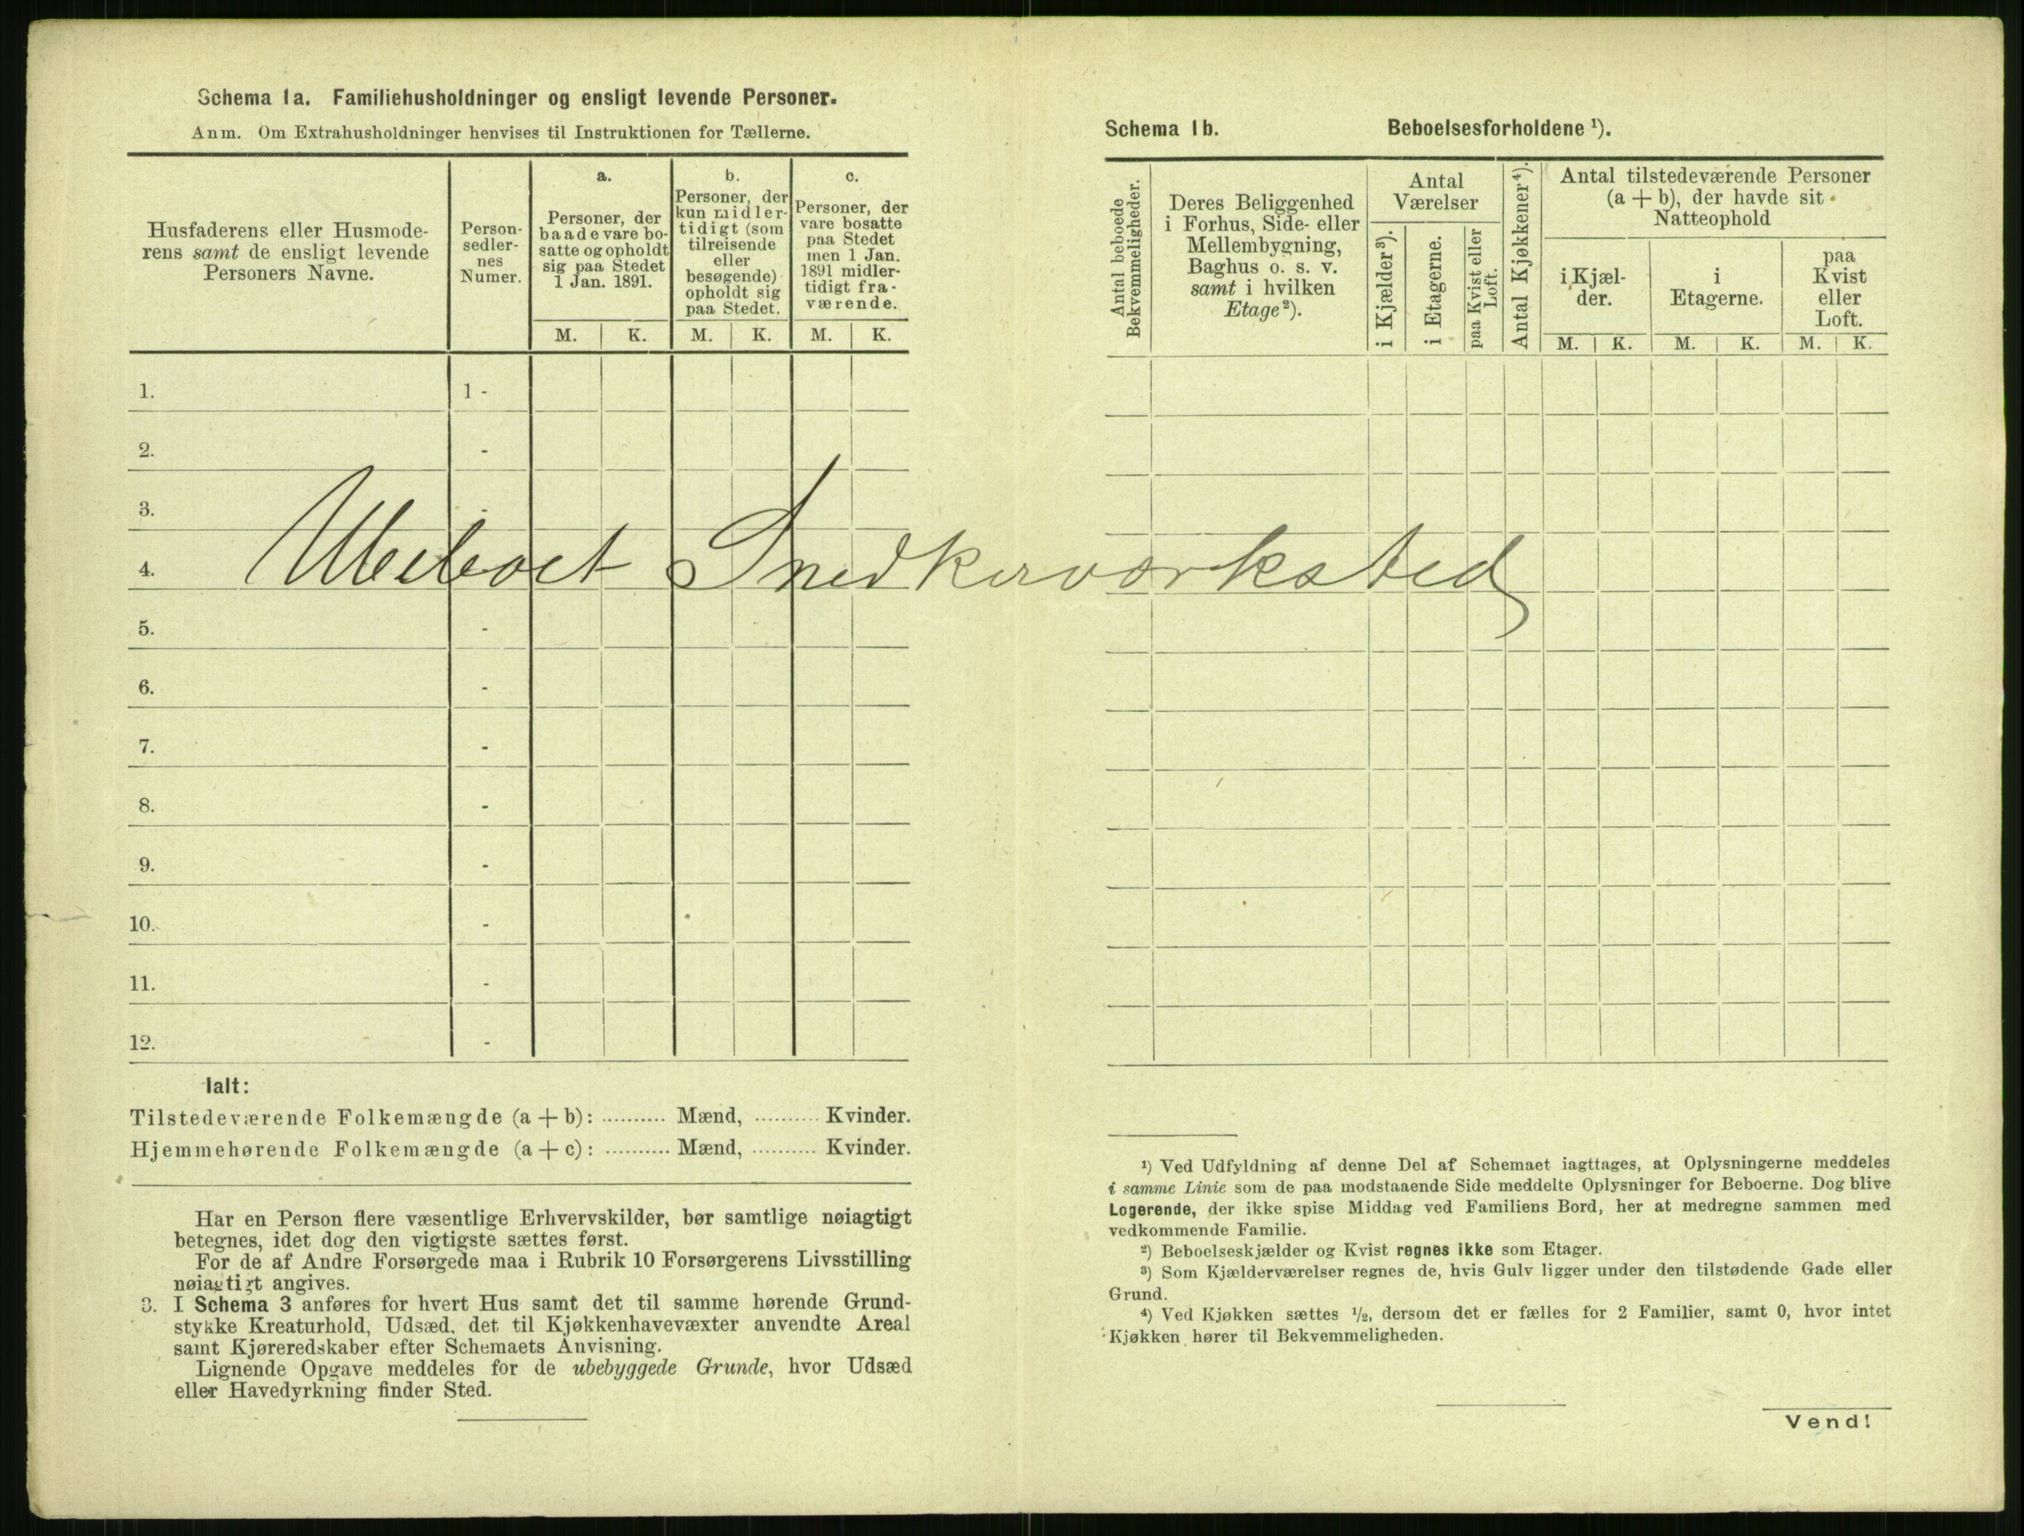 Schema 1a. Familiehusholdninger og ensligt levende Personer.
Anm. Om Extrahusholdninger henvises til Instruktionen for Tællerne.
Husfaderens eller Husmode-
rens samt de ensligt levende
Personers Navne.
Person-
sedler-
nes
Numer.
a.
Personer, der
baade vare bo-
satte og opholdt
sig paa Stedet
1 Jan. 1891.
b.
Personer, der
kun midler-
tidigt (som
tilreisende
eller
besøgende)
opholdt sig
paa Stedet.
c.
Personer, der
vare bosatte
paa Stedet
men 1 Jan.
1891 midler-
tidigt fra-
værende.
M. K. M. K. M. K.
1. 1 -
2. -
3. -
4. Ubeboet Snedkerværksted
5. -
6. -
7. -
8. -
9. -
10. -
11. -
12. -
Ialt:
Tilstedeværende Folkemængde (a + b): .......... Mænd, .......... Kvinder.
Hjemmehørende Folkemængde (a + c): .......... Mænd, .......... Kvinder.
Har en Person flere væsentlige Erhvervskilder, bør samtlige nøiagtigt
betegnes, idet dog den vigtigste sættes først.
For de af Andre Forsørgede maa i Rubrik 10 Forsørgerens Livsstilling
nøiagtigt angives.
3. I Schema 3 anføres for hvert Hus samt det til samme hørende Grund-
stykke Kreaturhold, Udsæd, det til Kjøkkenhavevæxter anvendte Areal
samt Kjøreredskaber efter Schemaets Anvisning.
Lignende Opgave meddeles for de ubebyggede Grunde, hvor Udsæd
eller Havedyrkning finder Sted.
Schema 1b. Beboelsesforholdene ¹).
Antal beboede
Bekvemmeligheder.
Deres Beliggenhed
i Forhus, Side- eller
Mellembygning,
Baghus o. s. v.
samt i hvilken
Etage ²).
Antal
Værelser
i Kjælder ³).
i Etagerne.
paa Kvist eller
Loft.
Antal Kjøkkener ⁴).
Antal tilstedeværende Personer
(a + b), der havde sit
Natteophold
i Kjæl-
der.
i
Etagerne.
paa
Kvist
eller
Loft.
M. K. M. K. M. K.
¹) Ved Udfyldning af denne Del af Schemaet iagttages, at Oplysningerne meddeles
i samme Linie som de paa modstaaende Side meddelte Oplysninger for Beboerne. Dog blive
Logerende, der ikke spise Middag ved Familiens Bord, her at medregne sammen med
vedkommende Familie.
²) Beboelseskjælder og Kvist regnes ikke som Etager.
³) Som Kjælderværelser regnes de, hvis Gulv ligger under den tilstødende Gade eller
Grund.
⁴) Ved Kjøkken sættes ½, dersom det er fælles for 2 Familier, samt 0, hvor intet
Kjøkken hører til Bekvemmeligheden.
Vend!